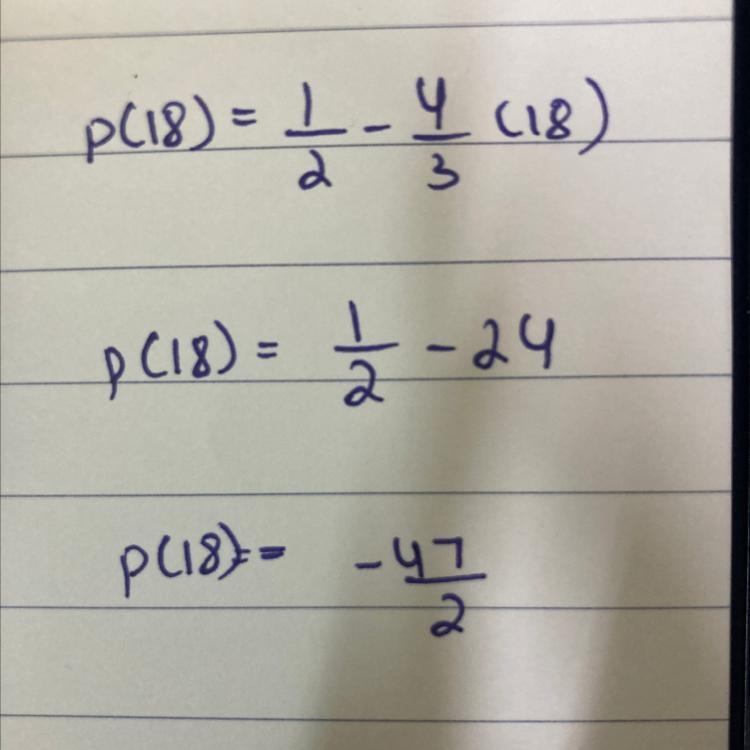 p(18) = 1/2 - 4/3 (18)
p(18) = 1/2 - 24
p(18) = -47/2